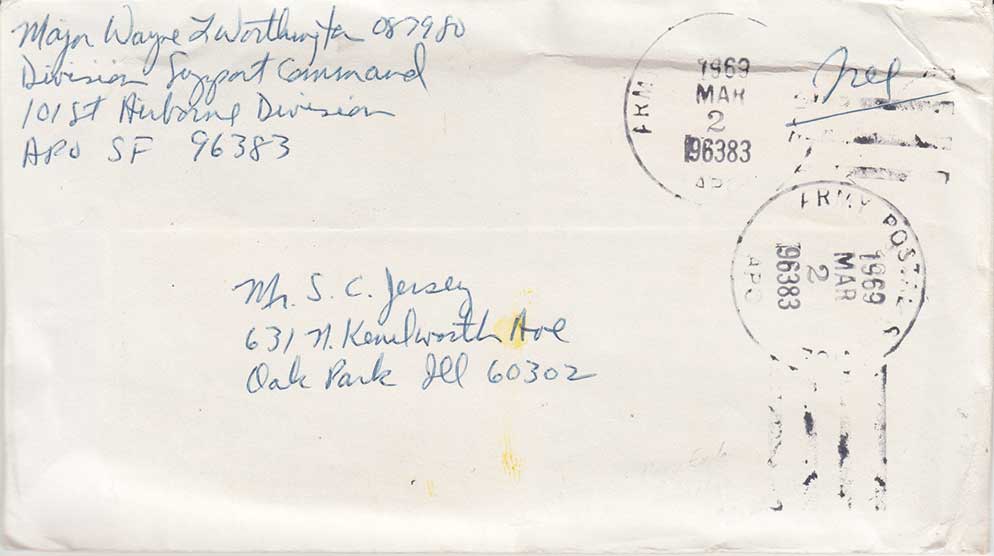 Major Wayne L Worthington 087980
Division Support Command
101st Airborne Division
APO SF 96383
Free
ARM
1969
MAR
2
96383
APO
ARMY POSTAL S
1969
MAR
2
96383
APO
Mr. S. C. Jersey
631 N. Kenilworth Ave
Oak Park Ill 60302